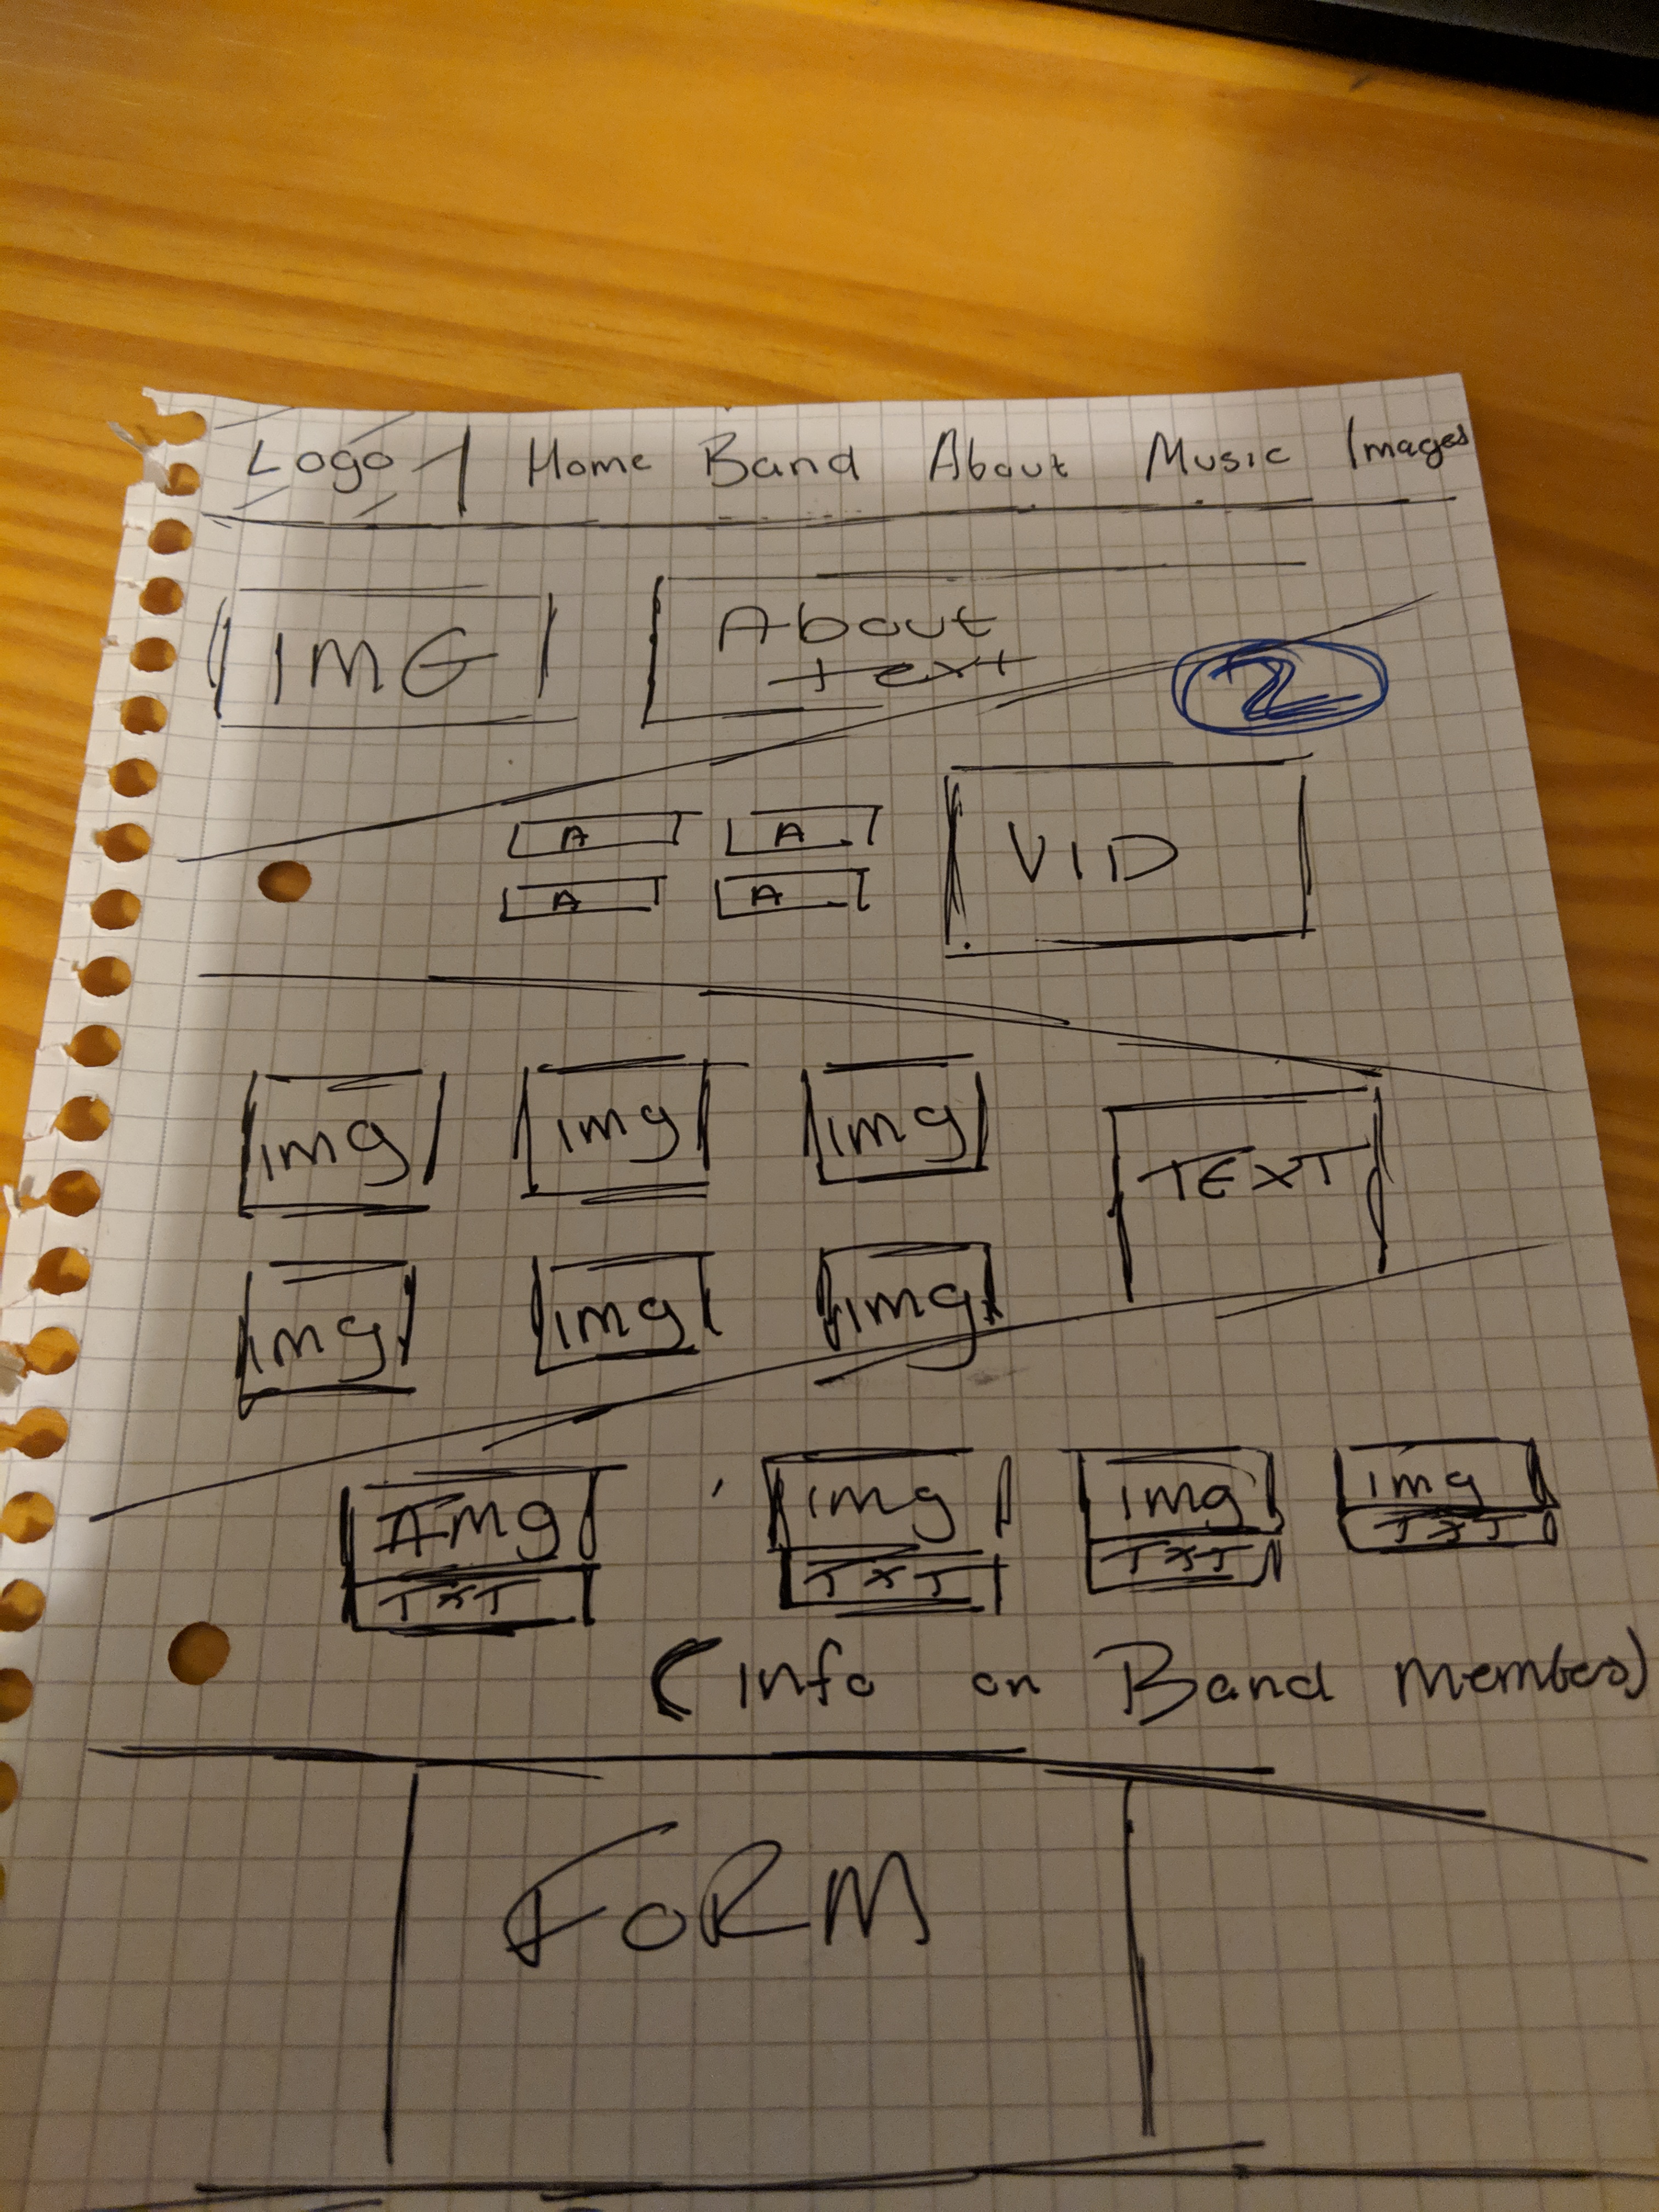 Logo Home Band About Music Images
IMG About
text
2
A A
A A
VID
img img img
TEXT
img img img
Img img img img
TXT TXT TXT TXT
(Info on Band Members)
FORM